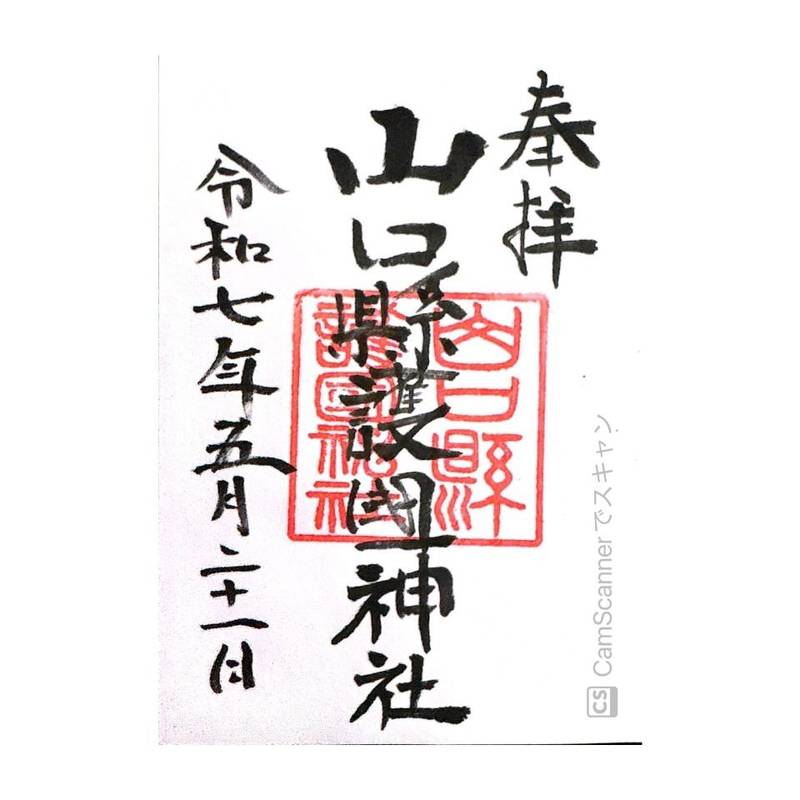 奉拝
山口縣護國神社
山口縣
護國神社
令和七年五月二十一日
CS CamScannerでスキャン